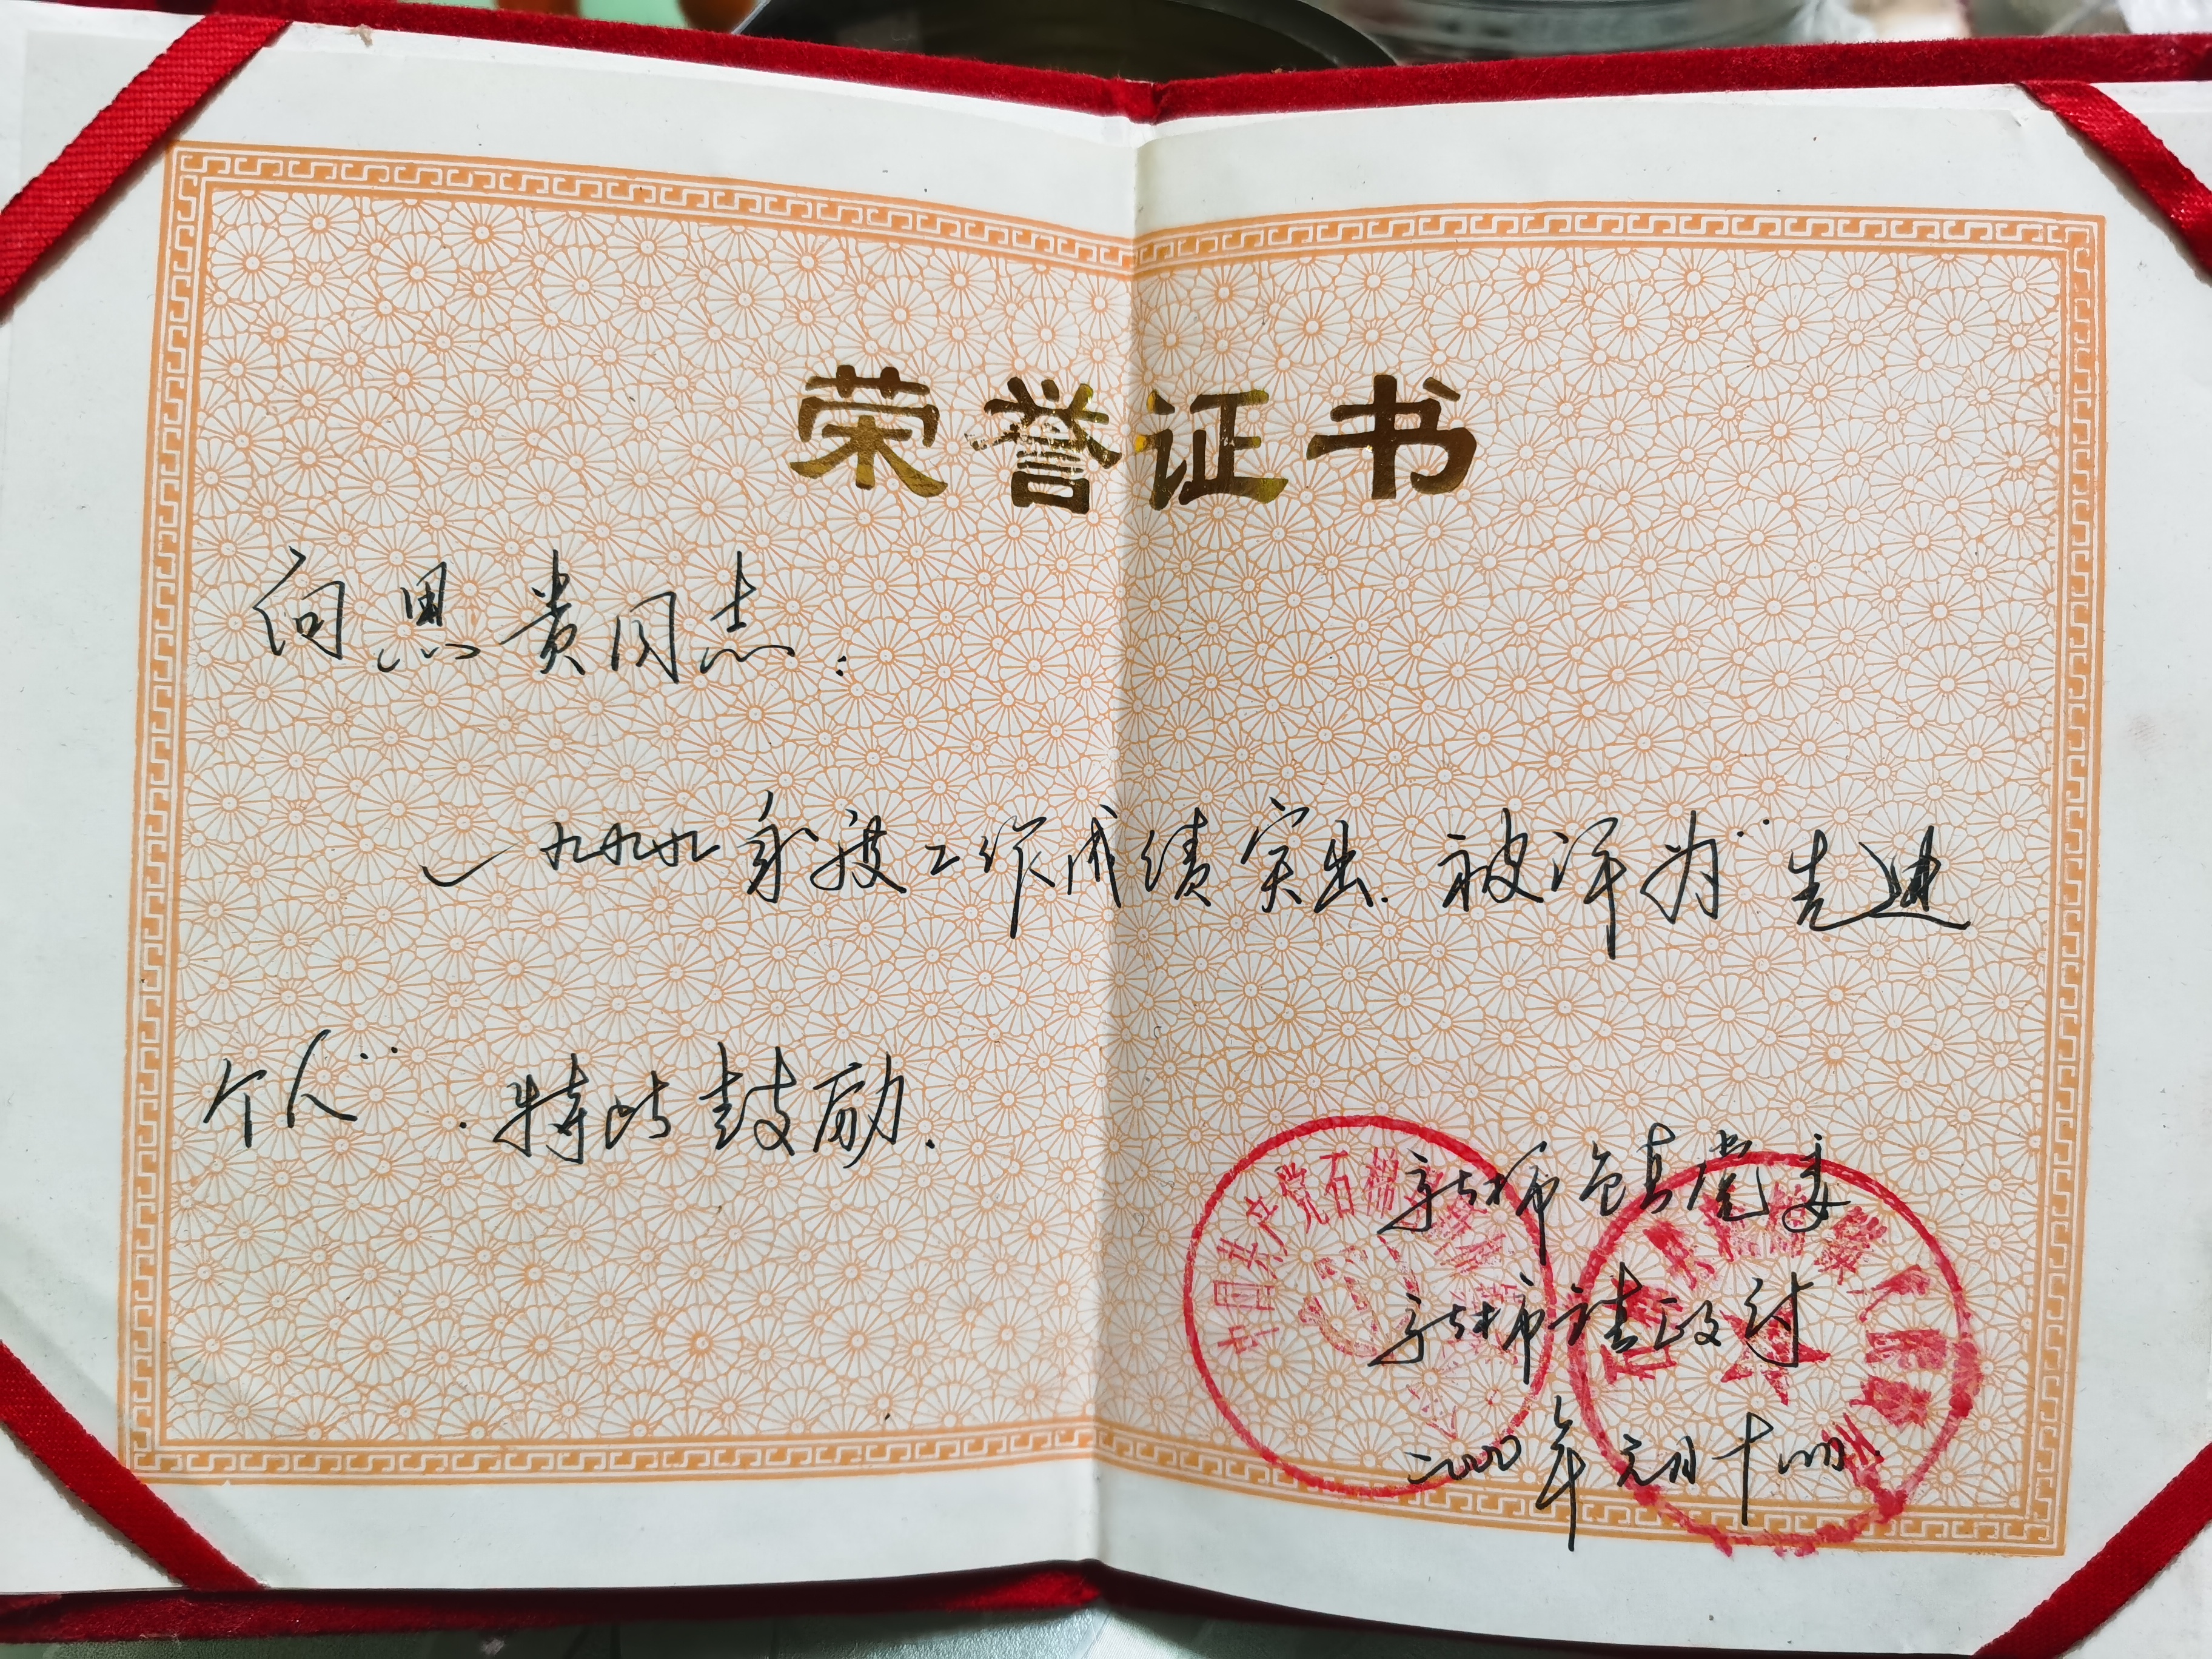 荣誉证书
向思贵同志：
一九九九年度工作成绩突出.被评为"先进
个人".特此鼓励.
新棉镇党委
新棉镇政府
二000年元月十四日
中国共产党石棉